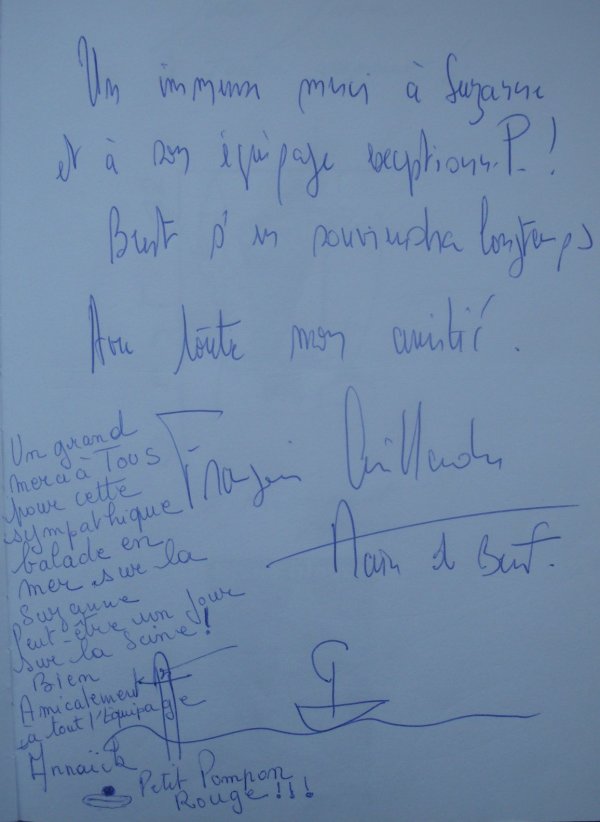 Un immense merci à Suzanne
et à son équipage exceptionn. P. !
Brest s'en souviendra longtemps
Avec toute mon amitié.
François Cuillandre
Maire de Brest.
Un grand
merci à Tous
pour cette
sympathique
balade en
mer sur la
Suzanne
Peut-être un jour
sur la Seine !
Bien
Amicalement
à tout l'Equipage
Annaïck
Petit Pompon
Rouge !!!